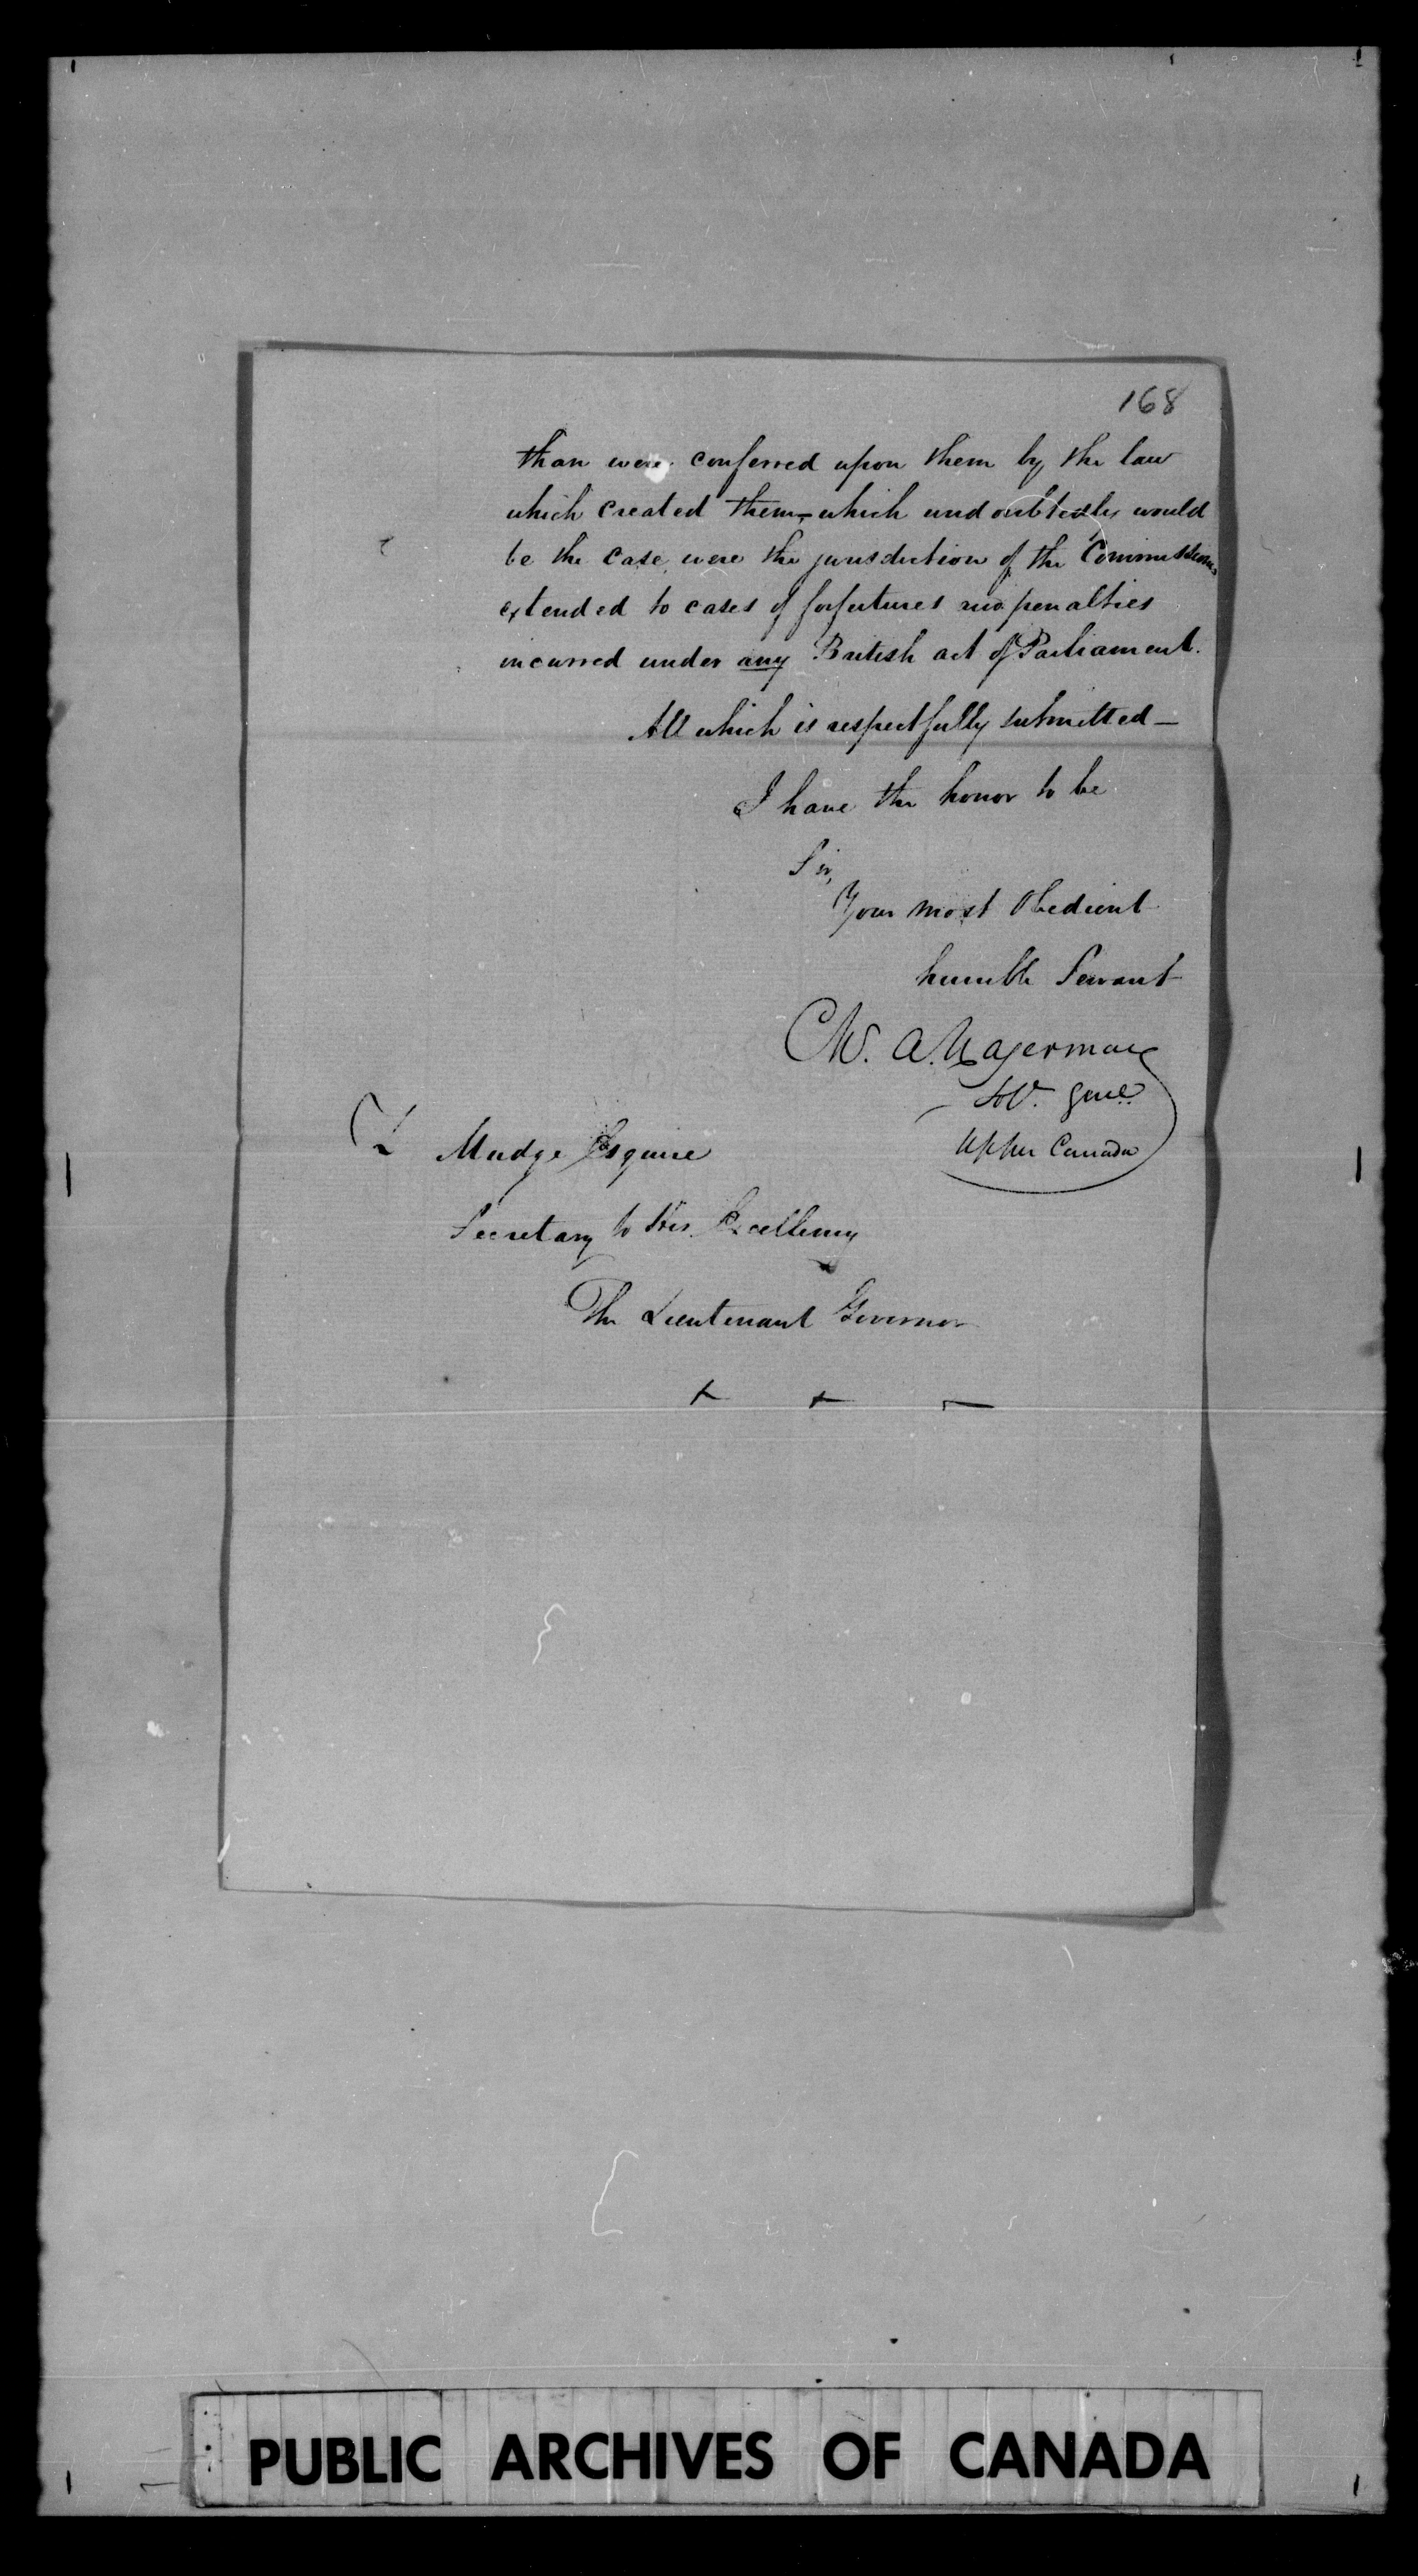 168
than were conferred upon them by the law
which created them – which undoubtedly would
be the case were the jurisdiction of the Commissioners
extended to cases of forfeitures and penalties
incurred under any British act of Parliament.
All which is respectfully submitted –
I have the honor to be
Sir,
Your most Obedient
humble Servant
C. A. Hagerman
Sol. Genl.
Upper Canada
Z Mudge Esquire
Secretary to His Excellency
The Lieutenant Governor
PUBLIC ARCHIVES OF CANADA